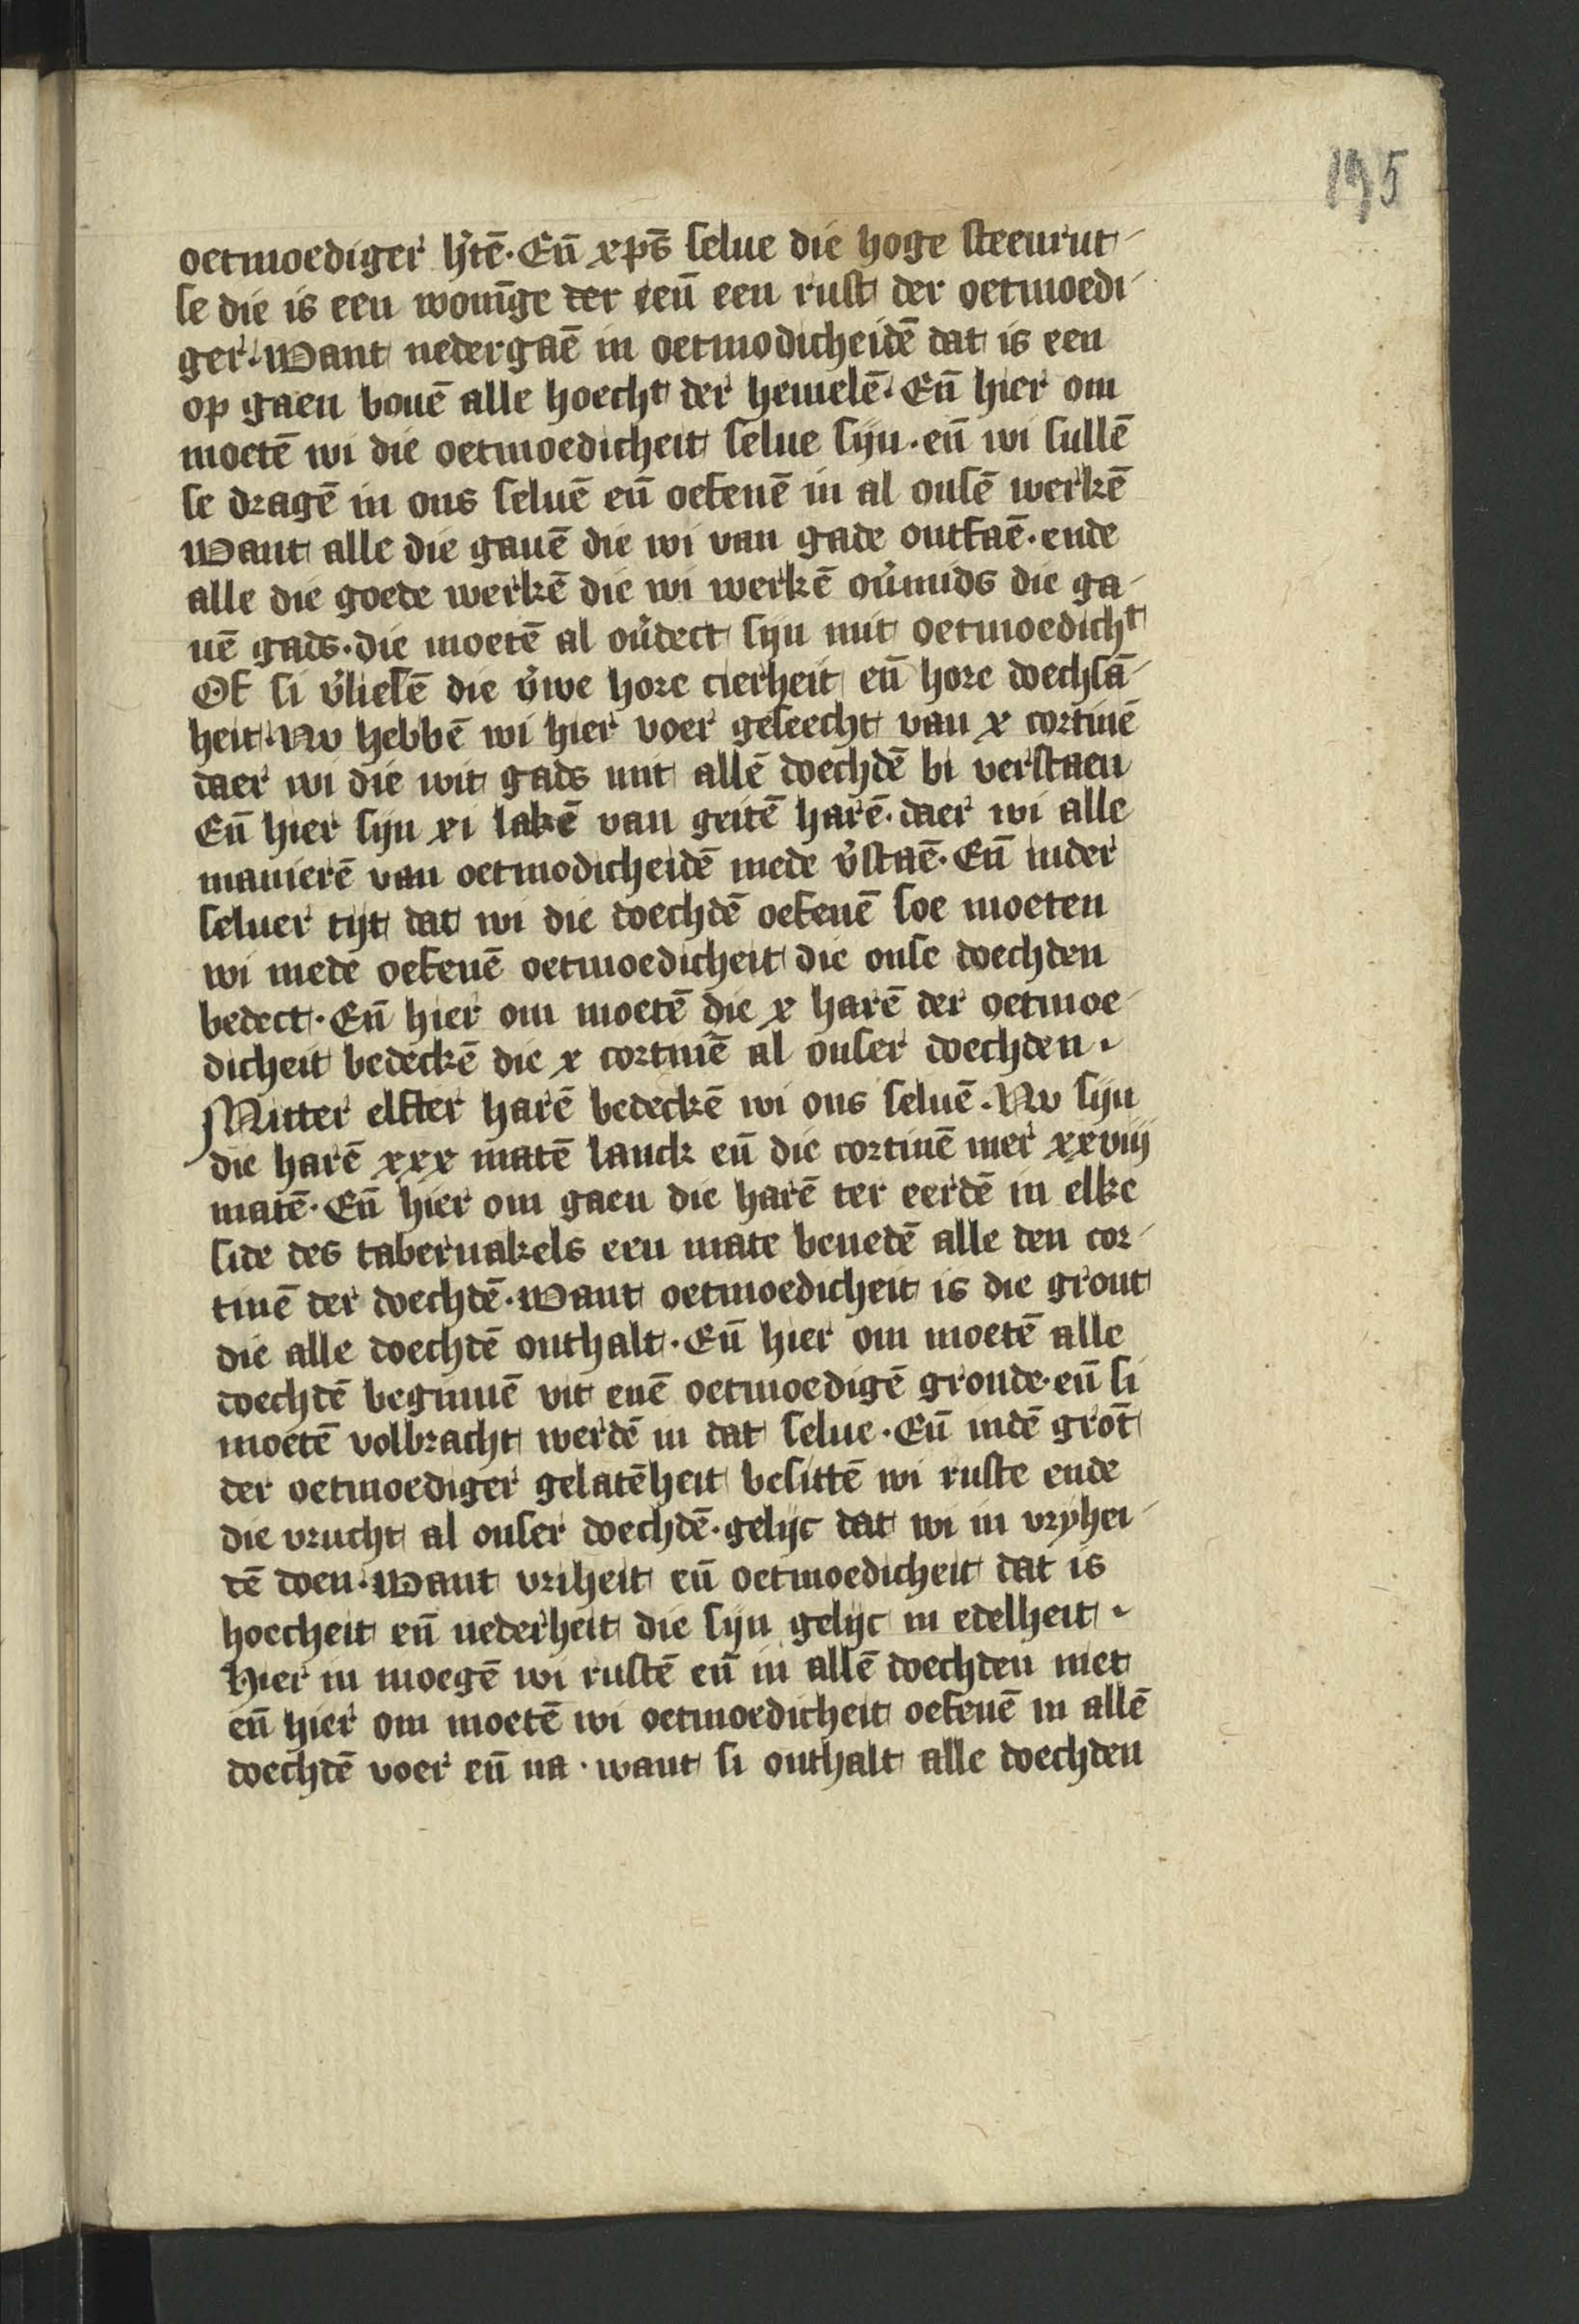 195
oetmoediger h̾tē. Eñ xp̄s selue die hoge steenrut-
se die is een wonīge der eeñ een rust der oetmoedi-
ger. Want nedergaē in oetmodicheidē dat is een
op gaen bouē alle hoechᵗ der hemelē. Eñ hier om
moetē wi die oetmoedicheit selue sijn. eñ wi sullē
se dragē in ons seluē eñ oefenē in al onsē werkē
Want alle die gauē die wi van gade ontfaē. ende
alle die goede werkē die wi werkē ou̾mids die ga-
uē gads. die moetē al ou̾dect sijn mit oetmoedichᵗ
Of si v̾liesē die v̾we hore cierheit eñ hore doechsā-
heit. Nv hebbē wi hier voer geseecht van x cortinē
daer wi die wit gads mit allē doechdē bi verstaen
Eñ hier sijn xi lakē van geitē harē. daer wi alle
manierē van oetmodicheidē mede v̾staē. Eñ inder
seluer tijt dat wi die doechdē oefenē soe moeten
wi mede oefenē oetmoedicheit die onse doechden
bedect. Eñ hier om moetē die x harē der oetmoe-
dicheit bedeckē die x cortinē al onser doechden.
Mitter elfter harē bedeckē wi ons seluē. Nv sijn
die harē xxx matē lanck eñ die cortinē mer xxviij
matē. Eñ hier om gaen die harē ter eerdē in elke
side des tabernakels een mate benedē alle den cor-
tinē der doechdē. Want oetmoedicheit is die gront
die alle doechdē onthalt. Eñ hier om moetē alle
doechdē beginnē vit enē oetmoedigē gronde. eñ si
moetē volbracht werdē in dat selue. Eñ indē grōt
der oetmoediger gelatēheit besittē wi ruste ende
die vrucht al onser doechdē. gelijc dat wi in vryhei-
dē doen. Want vriheit eñ oetmoedicheit dat is
hoecheit eñ nederheit die sijn gelijc in edelheit.
Hier in moegē wi rustē eñ in allē doechden niet
eñ hier om moetē wi oetmoedicheit oefenē in allē
doechdē voer eñ na. want si onthalt alle doechden